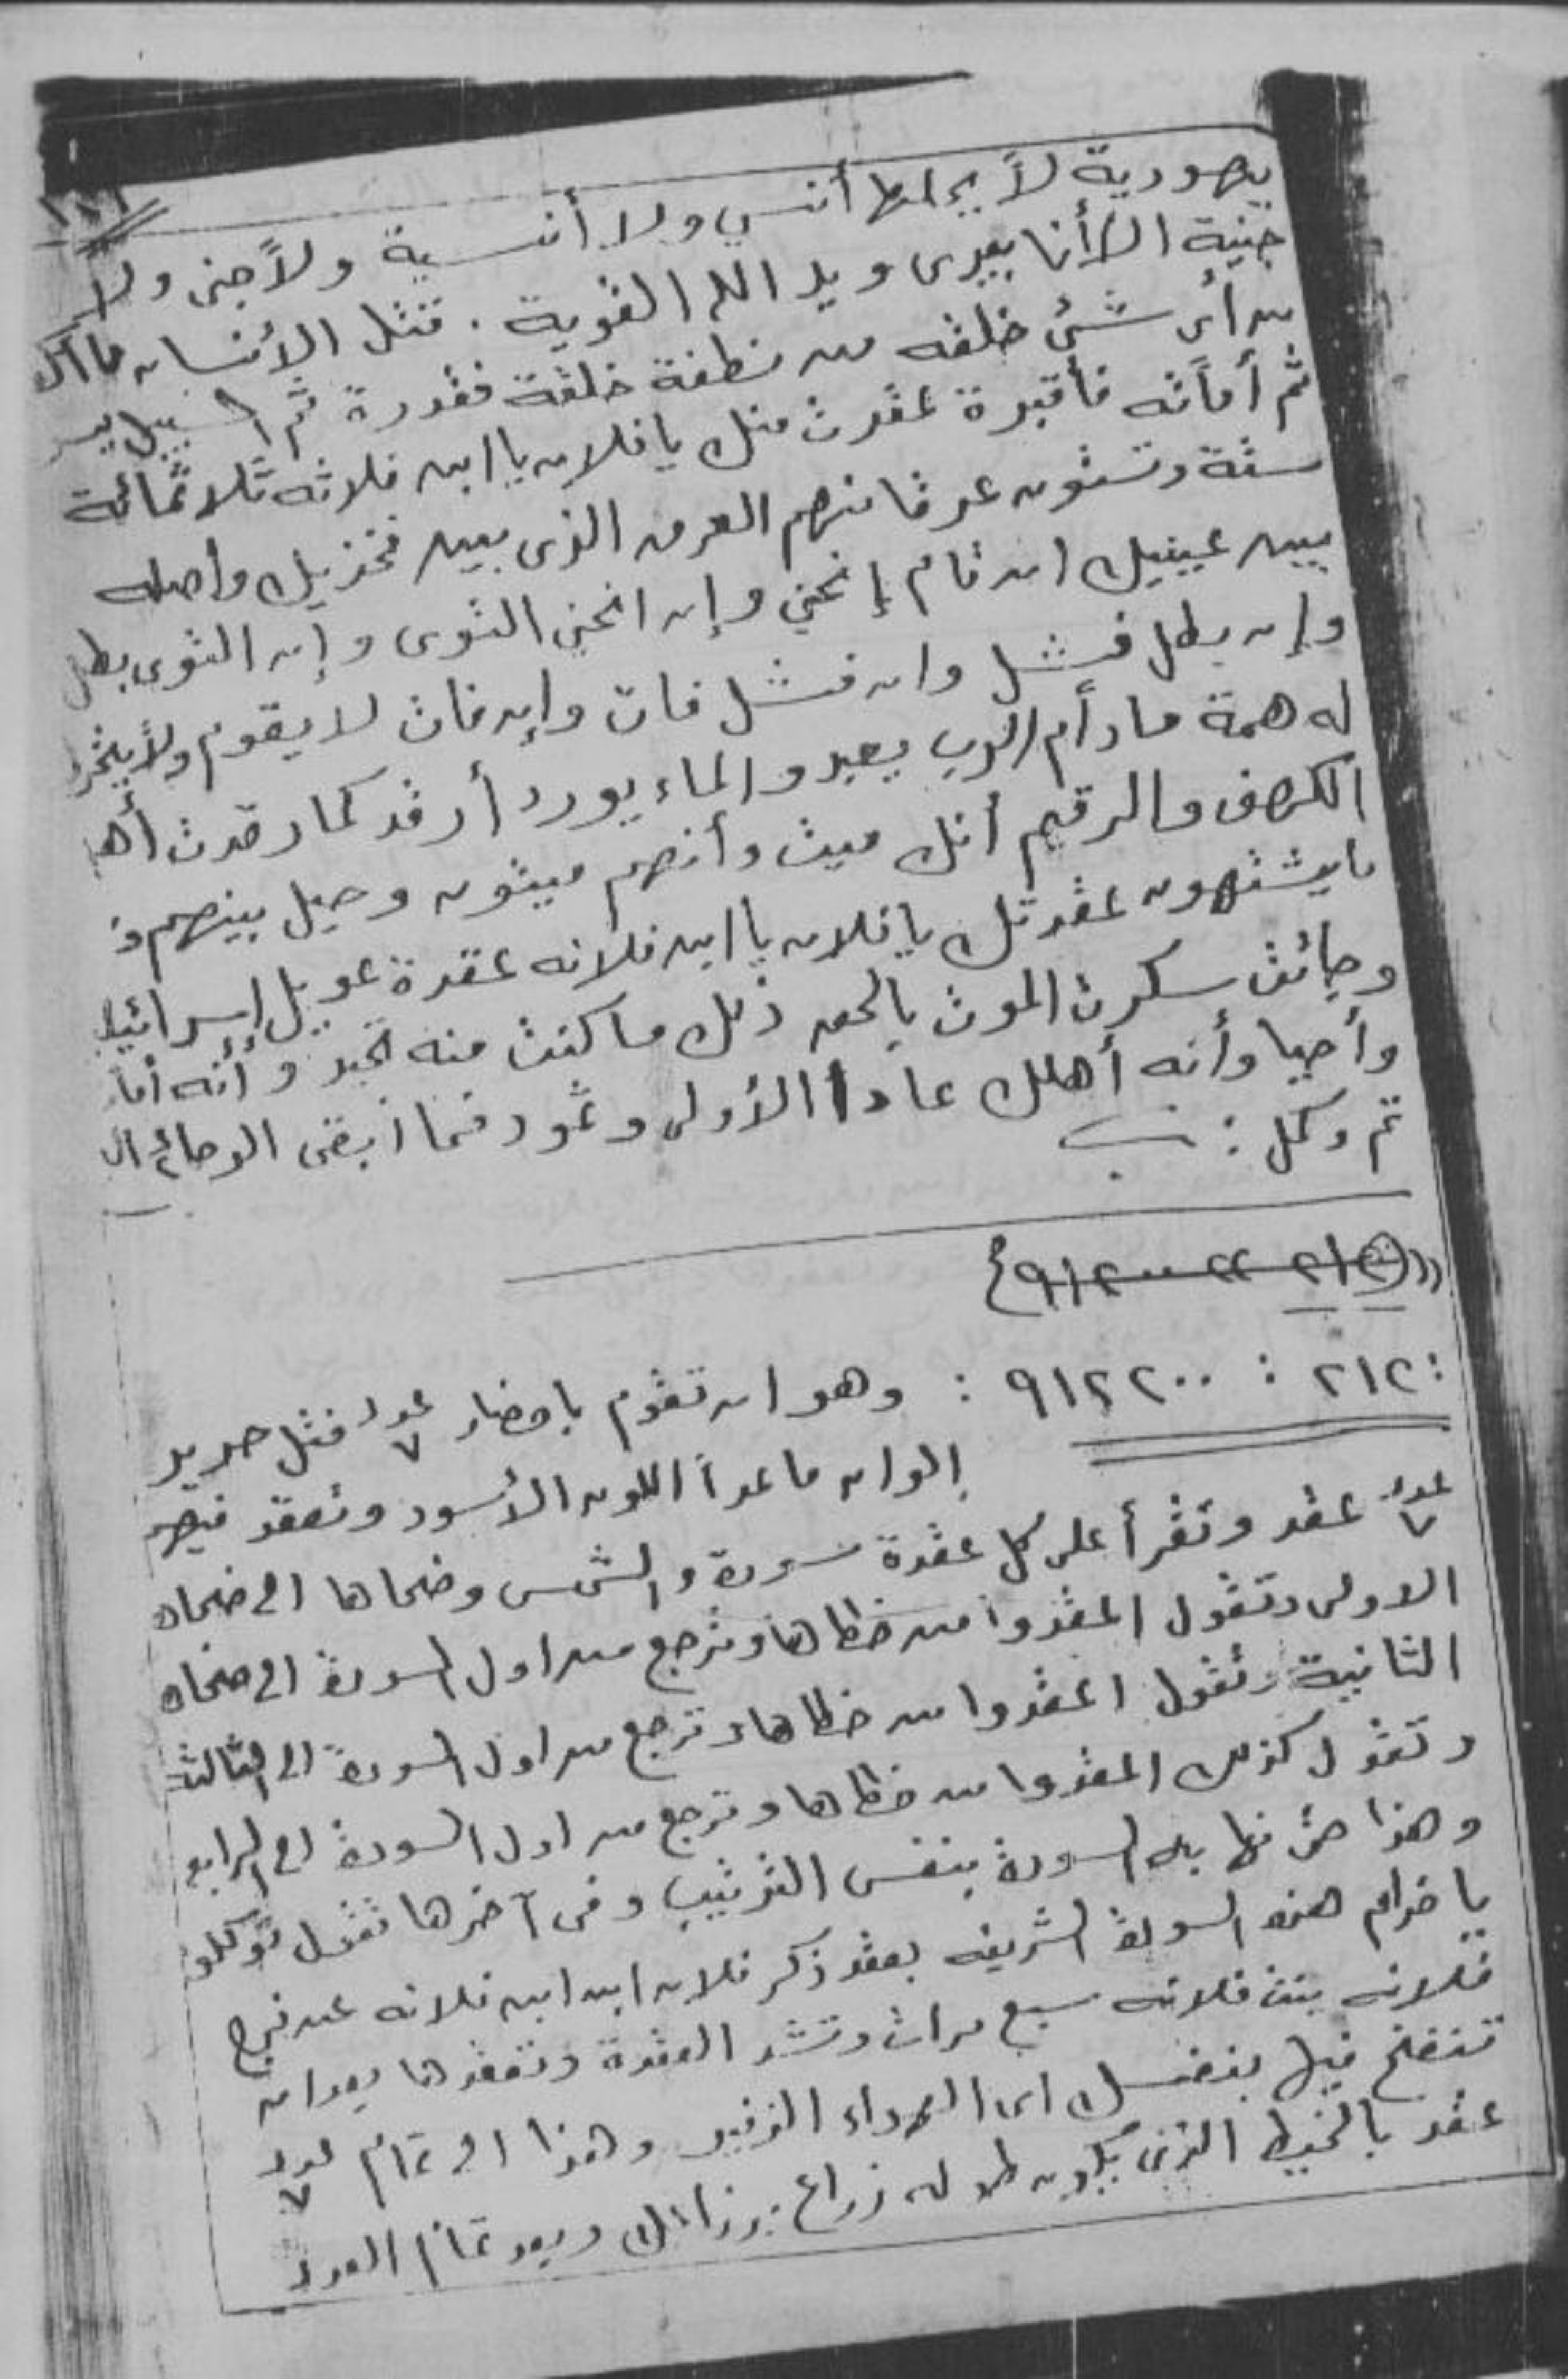 يهودية لاً يحلها أنسي ولا أنسية ولاً جنى ولا
جنية الا أنا بيدى ويد الله القوية . قتل الأنسان ما اك
من أى شئ خلقه من نطفة خلقة فقدرة ثم السبيل يسر
ثم أماته فأقبرة عقدت منك يا فلان يا ابن فلانه ثلاثمائة
ستة وستون عرقا منهم العرق الذى بين فخذيك وأصله
بين عينيك ان قام إنحني وإن انحني التوى وإن التوى بطل
وإن بطل فشل وان فشل مات وإن مات لا يقوم ولأ
له همة مادأم الرب يعبد والماء يورد أرقد كما رقدت أه
الكهف والرقيم أنك ميت وأنهم ميتون وحيل بينهم و
مايشتهون عقدتك يا فلان يا ابن فلانه عقدة عويل إسرائيل
وجائت سكرت الموت بالحق ذلك ما كنت منه تحيد و أنه أما
وأحيا وأنه أهلك عادا الأولى وثمود فما أبقى الوحا٢ ال
تم وكمل :
٢١٢ : ٩١٢٢٠٠ : وهو ان تقوم باحضار عدد ٧ فتل حرير
الوان ماعداً اللون الأسود وتعقد فيهم
عدد ٧ عقد وتقرأ على كل عقدة سورة والشمس وضحاها الى ضحاه
الاولى وتقول اعقدوا من خطاها وترجع من اول السورة الى ضحاه
الثانية وتقول اعقدوا من خطاها وترجع من اول السورة الى الثالثة
وتقول كذلك اعقدوا من خطاها وترجع من اول السورة الى الرابع
وهذا حتى نهايه السورة بنفس الترتيب وفى آخرها تقول توكلو
يا خدام هذه السورة الشريفه بعقد ذكر فلان ابن ابن فلانه عن فرج
فلانه بنت فلانه سبع مرات وتشد العقدة وتعقدها بعد ان
تنفخ فيها بنفسك اى الهواء الزفير وهذا الى تمام عدد ٧
عقد بالخيط الذى يكون طوله زراع بزراعك وبعد تمام العدد